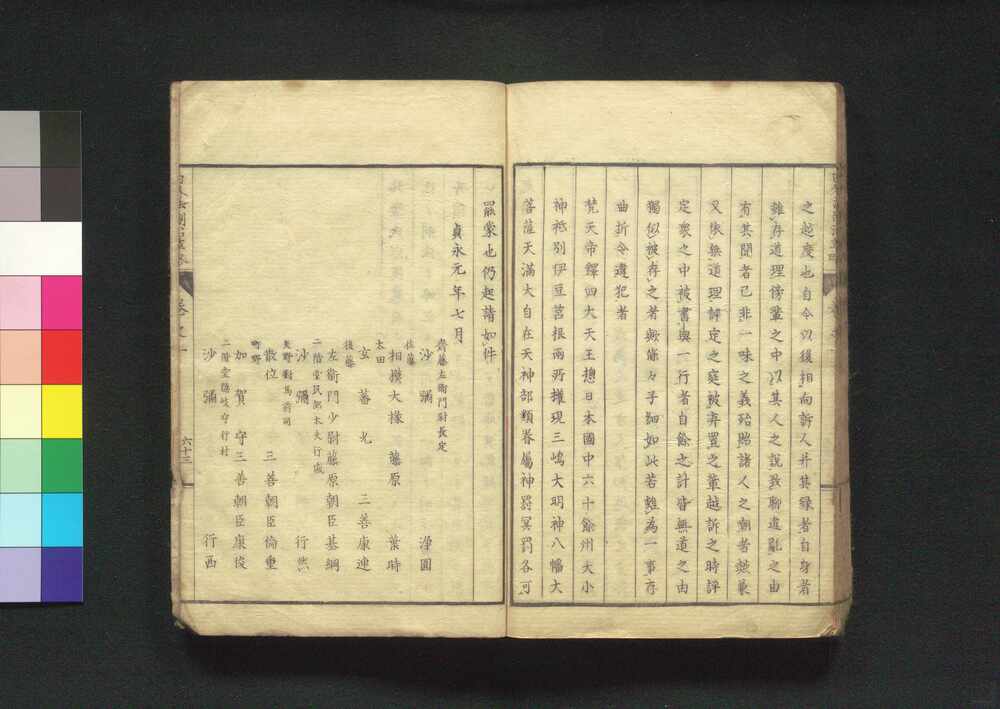 之越度也自今以後相向訴人并其縁者自身者
雖存道理傍輩之中以其人之說致聊違乱之由
有其聞者已非一味之義殆貽諸人之嘲者歟兼
又依無道理評定之庭被棄置之輩越訴之時評
定衆之中被書與一行者自餘之計皆無道之由
獨似被存之者與條々子細如此若雖為一事存
曲折令違犯者
梵天帝釋四大天王惣日本國中六十餘州大小
神祇別伊豆筥根兩所權現三嶋大明神八幡大
菩薩天滿大自在天神部類眷屬神罸冥罸各可
罷蒙也仍起請如件
貞永元年七月
齊藤左衞門尉長定
沙彌 淨圓
佐藤
相摸大掾 藤原 業時
太田
玄蕃允 三善康連
後藤
左衞門少尉藤原朝臣基綱
二階堂民部太夫行盛
沙彌 行然
矢野對馬前司
散位 三善朝臣倫重
町野
加賀守三善朝臣康俊
二階堂隱岐守行村
沙彌 行西
卷之一
六十三